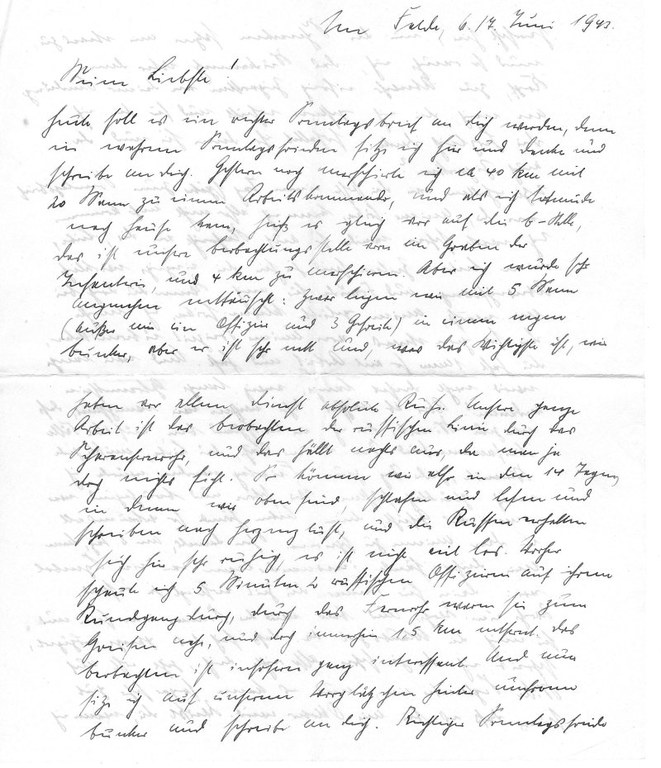 Im Felde, 6./7. Juni 1943.
Meine Liebste!
Heute soll es ein rechter Sonntagsbrief an dich werden, denn
in wahrem Sonntagsfrieden sitze ich hier und denke und
schreibe an dich. Gestern noch marschierte ich ca 40 km mit
20 Mann zu einem Arbeitskommando, und als ich todmüde
nach Hause kam, hieß es gleich vor auf die B-Stelle,
das ist unsere Beobachtungsstelle vorn im Graben der
Infanterie, und 4 km zu marschieren. Aber ich wurde sehr
angenehm enttäuscht: zwar liegen wir mit 5 Mann
(außer mir ein Offizier und 3 Gefreite) in einem engen
Bunker, aber er ist sehr nett und, was das Wichtigste ist, wir
haben vor allem dienstl. absolute Ruhe. Unsere ganze
Arbeit ist das Beobachten der russischen Linie durch das
Scherenfernrohr, und das fällt nachts aus, da man ja
doch nichts sieht. So können wir also in den 14 Tagen,
in denen wir oben sind, schlafen und lesen und
schreiben nach Herzenslust, und die Russen verhalten
sich hier sehr ruhig, es ist nicht viel los. Vorher
schaute ich 5 Minuten 2 russischen Offizieren auf ihrem
Rundgang durch, durch das Fernrohr waren sie zum
Greifen nahe, und doch immerhin 1,5 km entfernt. Das
Beobachten ist insofern ganz interessant. Und nun
sitze ich auf unserem Vorplätzchen hinter unserem
Bunker und schreibe an dich. Richtiger Sonntagsfriede